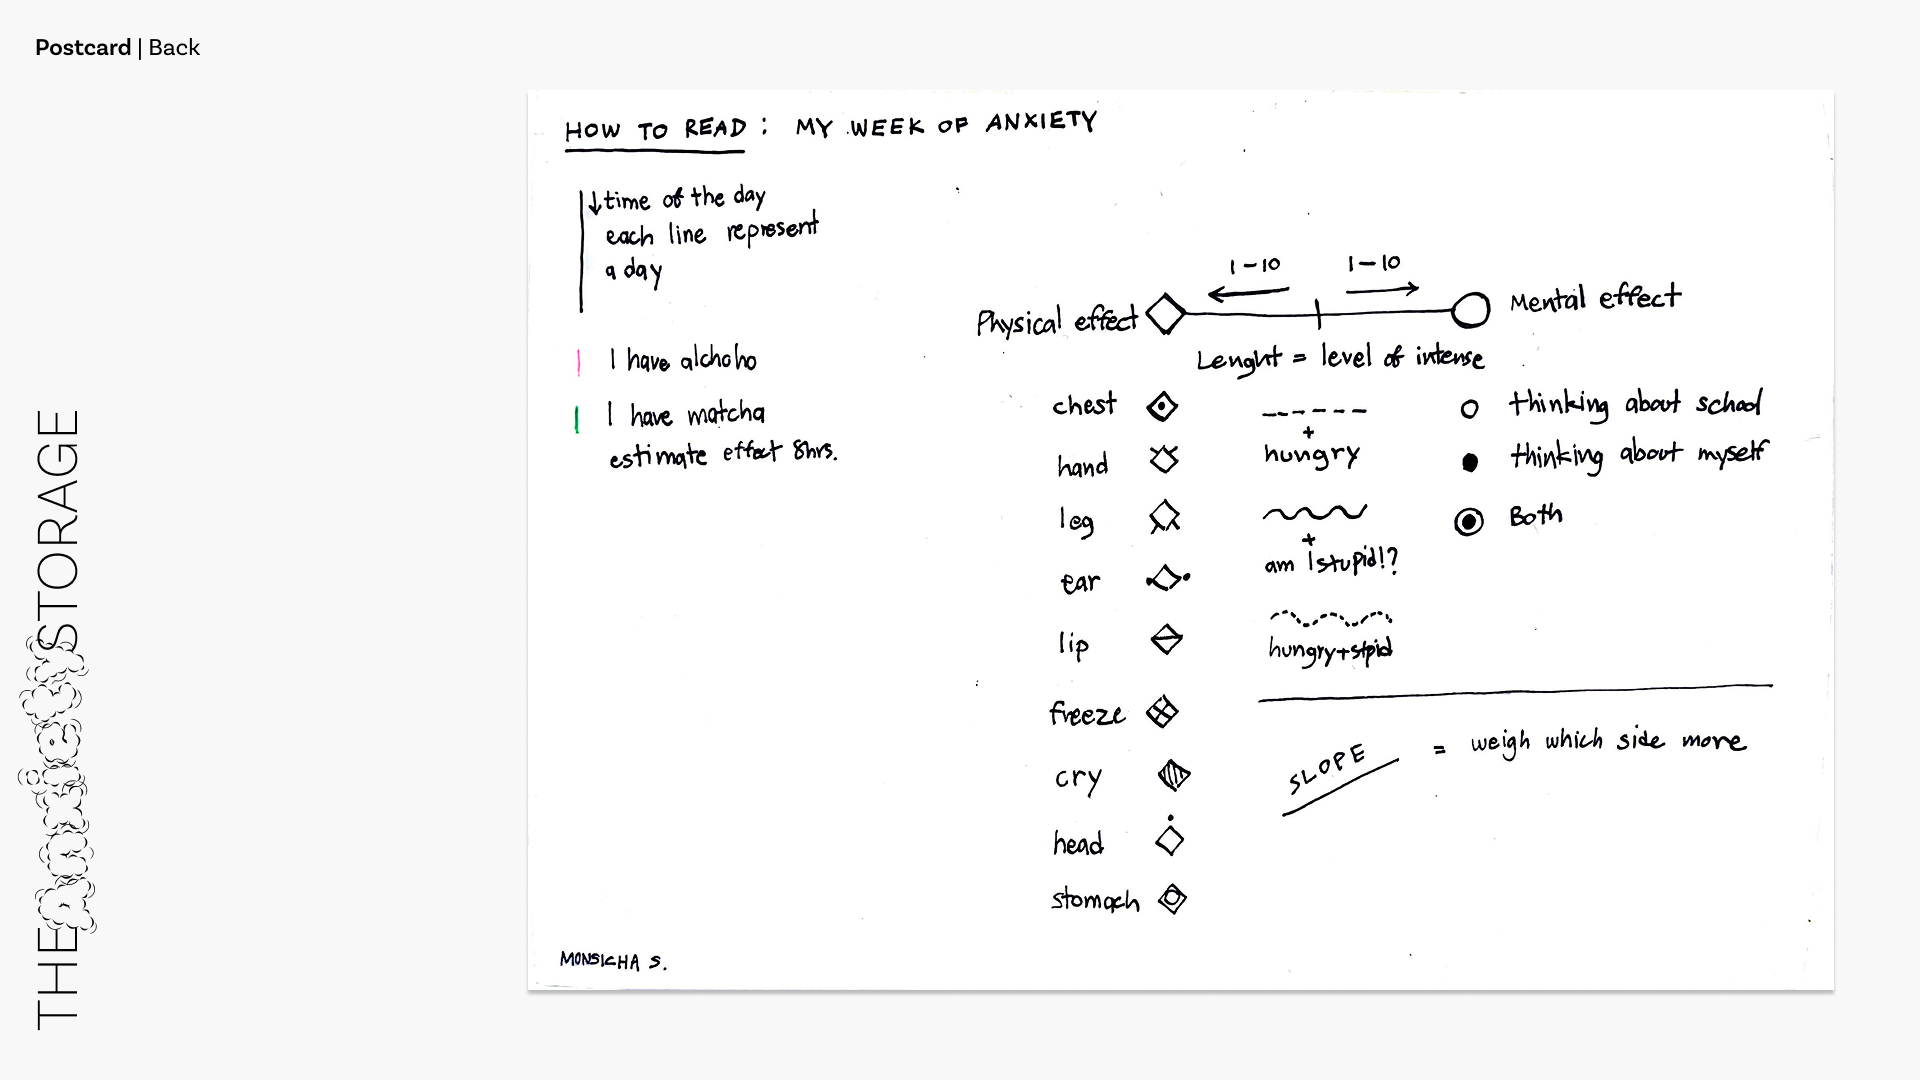 Postcard | Back
THE Anxiety STORAGE
HOW TO READ : MY WEEK OF ANXIETY
↓time of the day
each line represent
a day
I have alchoho
I have matcha
estimate effect 8hrs.
1-10
1-10
Physical effect
Mental effect
Lenght = level of intense
chest
hand
leg
ear
lip
freeze
cry
head
stomach
+
hungry
+
am I stupid!?
hungry+stpid
thinking about school
thinking about myself
Both
SLOPE = weigh which side more
MONSICHA S.